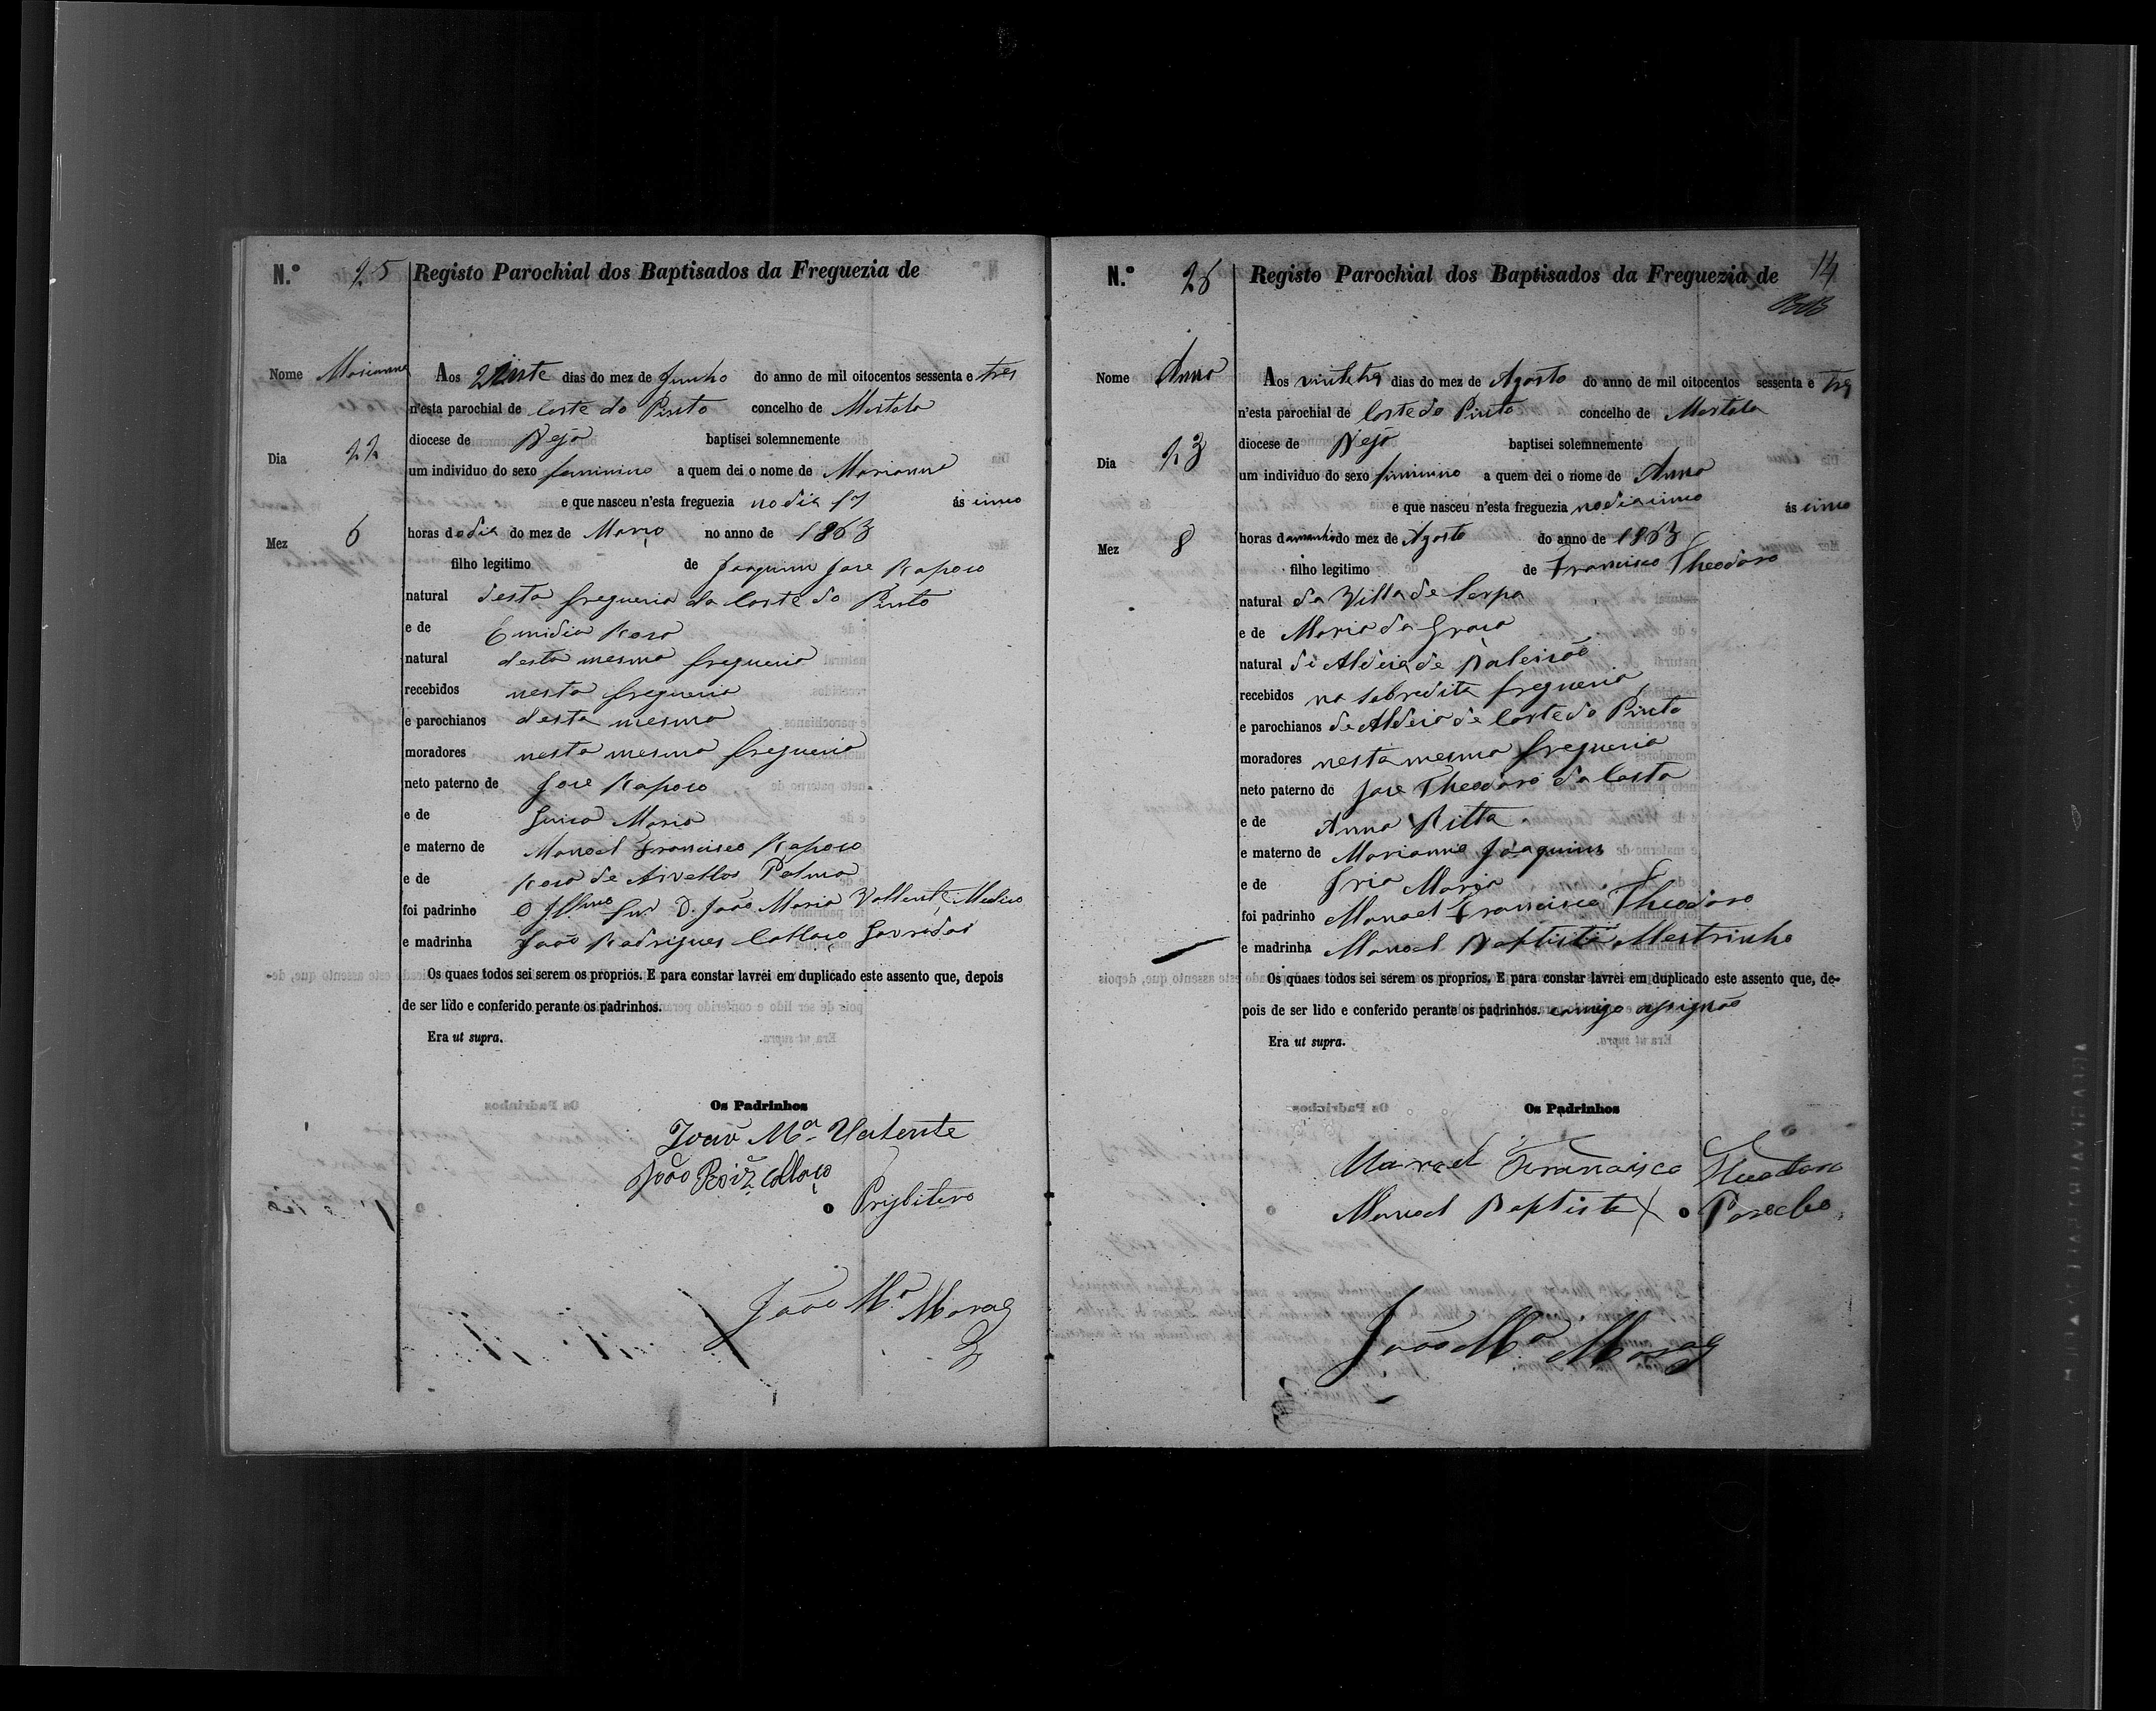 N.º 25 Registo Parochial dos Baptisados da Freguezia de
Nome Marianna Aos dias do mez de Junho do anno de mil oitocentos sessenta e tres
n'esta parochial de Corte do Pinto concelho de Mertola
diocese de Beja baptisei solemnemente
Dia 22
um individuo do sexo feminino a quem dei o nome de Marianna
e que nasceu n'esta freguezia no dia 17 ás cinco
Mez 6 horas do dia do mez de Março no anno de 1863
filho legitimo de Joaquim Jose Raposo
natural desta fregueria da Corte do Pinto
e de Emidia Rosa
natural desta mesma fregueria
recebidos nesta fregueria
e parochianos desta mesma
moradores nesta mesma fregueria
neto paterno de Jose Raposo
e de Maria
e materno de Manoel Francisco Raposo
e de Rosa de Palma
foi padrinho O Illmo Snr D. João Maria Vallente Medico
e madrinha João Rodrigues Collaço
Os quaes todos sei serem os proprios. E para constar lavrei em duplicado este assento que, depois
de ser lido e conferido perante os padrinhos.
Era ut supra.
Os Padrinhos
João Mª Valente
João Roiz Collaço
o Prisbitero
João Mª Moraes
N.º 26 Registo Parochial dos Baptisados da Freguezia de 14
Nome Anna Aos vintetres dias do mez de Agosto do anno de mil oitocentos sessenta e tres
n'esta parochial de Corte do Pinto concelho de Mertola
diocese de Beja baptisei solemnemente
Dia 23
um individuo do sexo feminino a quem dei o nome de Anna
e que nasceu n'esta freguezia no dia cinco ás cinco
Mez 8 horas da manha do mez de Agosto do anno de 1863
filho legitimo de Francisco Theodoro
natural da Villa de Serpa
e de Maria da Graça
natural de Aldeia de Baleisão
recebidos na sobredita fregueria
e parochianos de Aldeia de Corte do Pinto
moradores nesta mesma fregueria
neto paterno de Jose Theodoro da Costa
e de Anna Ritta
e materno de Marianno Joaquim
e de Iria Maria
foi padrinho Manoel Francisco Theodoro
e madrinha Manoel Baptista Mestrinho
Os quaes todos sei serem os proprios. E para constar lavrei em duplicado este assento que, de-
pois de ser lido e conferido perante os padrinhos. comigo assignão
Era ut supra.
Os Padrinhos
Manoel Francisco Theodoro
Manoel Baptista X o Parocho
João Mª Moraes